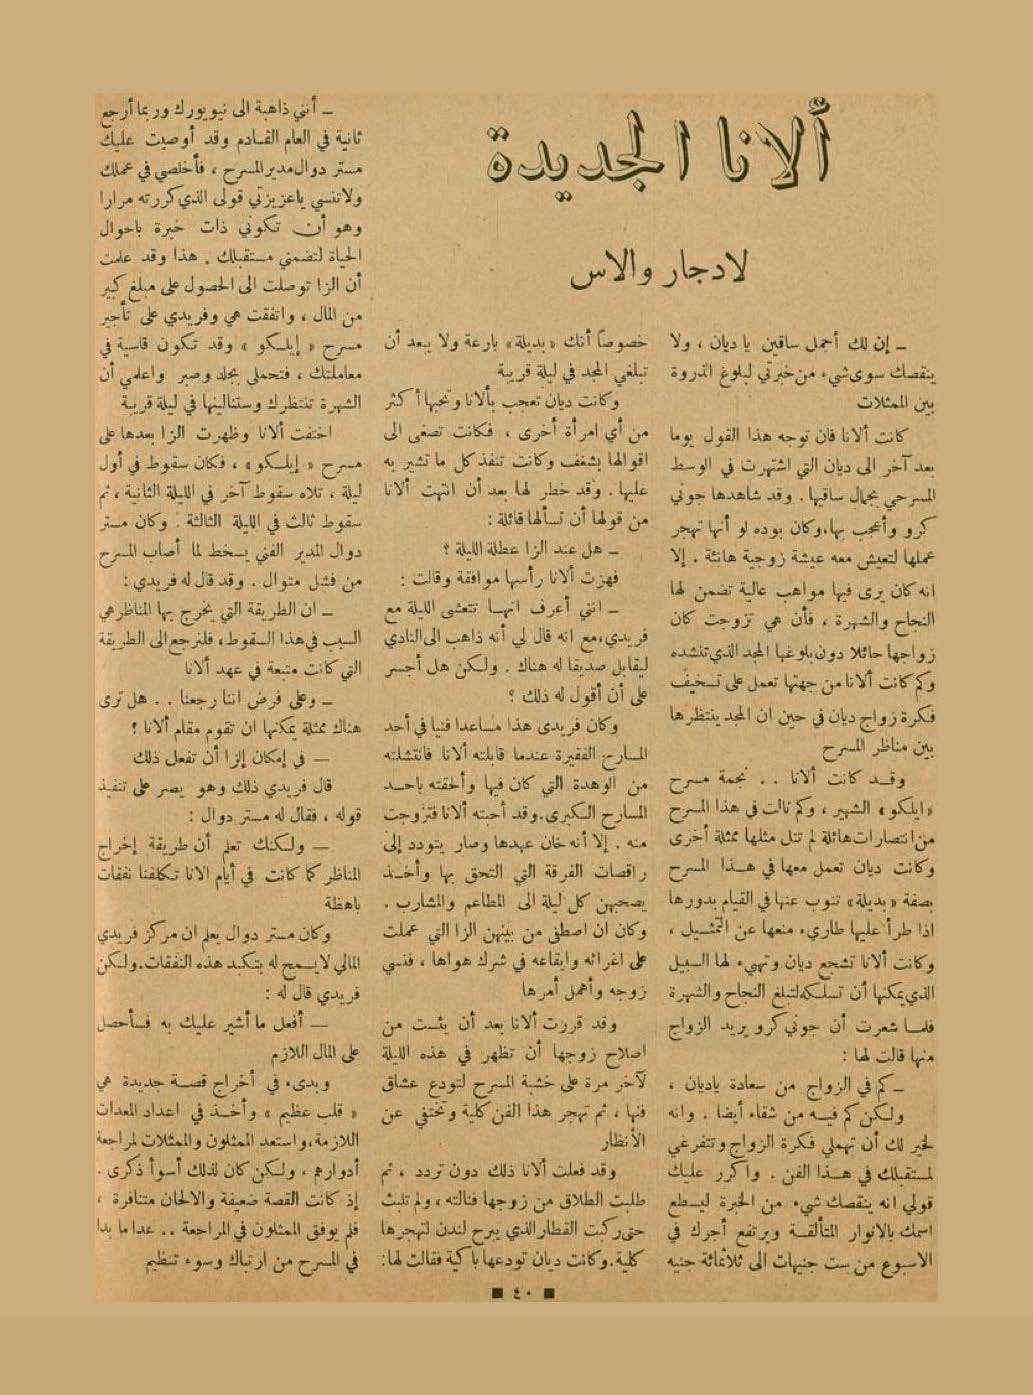 ألانا الجديدة
لادجار والاس
ـ إن لك أجمل ساقين يا ديان ، ولا
ينقصك سوى شيء من خبرتي لبلوغ الذروة
بين الممثلات
كانت ألانا فان توجه هذا القول يوما
بعد آخر الى ديان التي اشتهرت في الوسط
المسرحي بجمال ساقيها . وقد شاهدها جوني
كرو وأعجب بها،وكان بوده لو أنها تهجر
عملها لتعيش معه عيشة زوجية هانئة . إلا
انه كان يرى فيها مواهب عالية تضمن لها
النجاح والشهرة ، فأن هي تزوجت كان
زواجها حائلا دون بلوغها المجد الذي تنشده
وكم كانت ألانا من جهتها تعمل على تسخيف
فكرة زواج ديان في حين ان المجد ينتظرها
بين مناظر المسرح
وقد كانت ألانا . . نجمة مسرح
«ايلكو» الشهير ، وكم نالت في هذا المسرح
من انتصارات هائلة لم تنل مثلها ممثلة أخرى
وكانت ديان تعمل معها في هذا المسرح
بصفة «بديلة» تنوب عنها في القيام بدورها
اذا طرأ عليها طاريء منعها عن التمثيل ،
وكانت ألانا تشجع ديان وتهيء لها السبيل
الذي يمكنها أن تسلكه لتبلغ النجاح والشهرة
فلما شعرت أن جوني كرو يريد الزواج
منها قالت لها :
ـ كم في الزواج من سعادة ياديان ،
ولكن كم فيه من شقاء أيضا . وانه
لخير لك أن تهملي فكرة الزواج وتتفرغي
لمستقبلك في هذا الفن . واكرر عليك
قولي انه ينقصك شيء من الخبرة ليسطع
اسمك بالانوار المتألقة ويرتفع أجرك في
الاسبوع من ست جنيهات الى ثلاثمائة جنيه
خصوصاً أنك «بديلة» بارعة ولا يبعد أن
تبلغي المجد في ليلة قريبة
وكانت ديان تعجب بألانا وتحبها أكثر
من أي امرأة أخرى ، فكانت تصغى الى
اقوالها بشغف وكانت تنفذ كل ما تشير به
عليها . وقد خطر لها بعد أن انتهت ألانا
من قولها أن تسألها قائلة :
ـ هل عند الزا عطلة الليلة ؟
فهزت ألانا رأسها موافقة وقالت :
ـ انني أعرف انها تتعشى الليلة مع
فريدي،مع انه قال لي أنه ذاهب الى النادي
ليقابل صديقا له هناك . ولكن هل أجسر
على أن أقول له ذلك ؟
وكان فريدى هذا مساعدا فنيا في أحد
المسارح الفقيرة عندما قابلته ألانا فانتشلته
من الوهدة التي كان فيها وألحقته باحد
المسارح الكبرى.وقد أحبته ألانا فتزوجت
منه . إلا أنه خان عهدها وصار يتودد إلى
راقصات الفرقة التي التحق بها وأخذ
يصحبهن كل ليلة الى المطاعم والمشارب .
وكان ان اصطفى من بينهن الزا التي عملت
على اغرائه وايقاعه في شرك هواها ، فنسي
زوجه وأهمل أمرها
وقد قررت ألانا بعد أن يئست من
اصلاح زوجها أن تظهر في هذه الليلة
لآخر مرة على خشبة المسرح لتودع عشاق
فنها ، ثم تهجر هذا الفن كلية وتختفي عن
الأنظار
وقد فعلت ألانا ذلك دون تردد ، ثم
طلبت الطلاق من زوجها فنالته ، ولم تلبث
حتى ركبت القطار الذي يبرح لندن لتهجرها
كلية.وكانت ديان تودعها باكية فقالت لها:
ـ أنني ذاهبة الى نيويورك وربما أرجع
ثانية في العام القادم وقد أوصيت عليك
مستر دوال مدير المسرح ، فأخلصي في عملك
ولا تنسي ياعزيزتي قولى الذي كررته مرارا
وهو أن تكوني ذات خبرة باحوال
الحياة لتضمني مستقبلك . هذا وقد علمت
أن الزا توصلت الى الحصول على مبلغ كبير
من المال ، واتفقت هي وفريدي على تأجير
مسرح « إيلكو » وقد تكون قاسية في
معاملتك ، فتحملي بجلد وصبر واعلمي أن
الشهرة تنتظرك وستنالينها في ليلة قريبة
اختفت ألانا وظهرت الزا بعدها على
مسرح « إيلكو » ، فكان سقوط في أول
ليلة ، تلاه سقوط آخر في الليلة الثانية ، ثم
سقوط ثالث في الليلة الثالثة . وكان مستر
دوال المدير الفني يسخط لما أصاب المسرح
من فشل متوال . وقد قال له فريدي :
ـ ان الطريقة التي يخرج بها المناظر هي
السبب في هذا السقوط، فلنرجع الى الطريقة
التي كانت متبعة في عهد ألانا
ـ وعلى فرض اننا رجعنا . . هل ترى
هناك ممثلة يمكنها ان تقوم مقام ألانا ؟
ـ في إمكان إلزا أن تفعل ذلك
قال فريدي ذلك وهو يصر على تنفيذ
قوله ، فقال له مستر دوال :
ـ ولكنك تعلم أن طريقة إخراج
المناظر كما كانت في أيام الانا تكلفنا نفقات
باهظة
وكان مستر دوال يعلم ان مركز فريدي
المالي لايسمح له بتكبد هذه النفقات.ولكن
فريدي قال له :
ـ أفعل ما أشير عليك به فسأحصل
على المال اللازم
وبدىء في أخراج قصة جديدة هي
« قلب عظيم » وأخذ في اعداد المعدات
اللازمة،واستعد الممثلون والممثلات لمراجعة
أدوارهم ، ولكن كان لذلك أسوأ ذكرى .
إذ كانت القصة ضعيفة والالحان متنافرة ،
فلم يوفق الممثلون في المراجعة .. عدا ما بدا
في المسرح من ارتباك وسوء تنظيم
■ ٤٠ ■